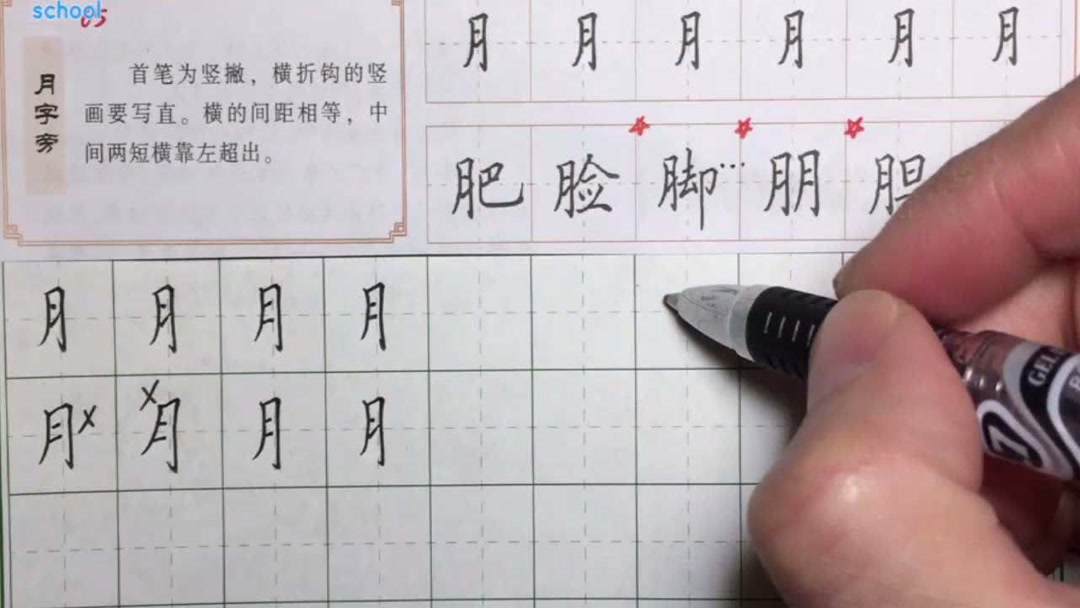 school
05
月字旁
首笔为竖撇，横折钩的竖
画要写直。横的间距相等，中
间两短横靠左超出。
月 月 月 月 月 月
肥 脸 脚… 朋 胆
月 月 月 月
月x x月 月 月
GEL